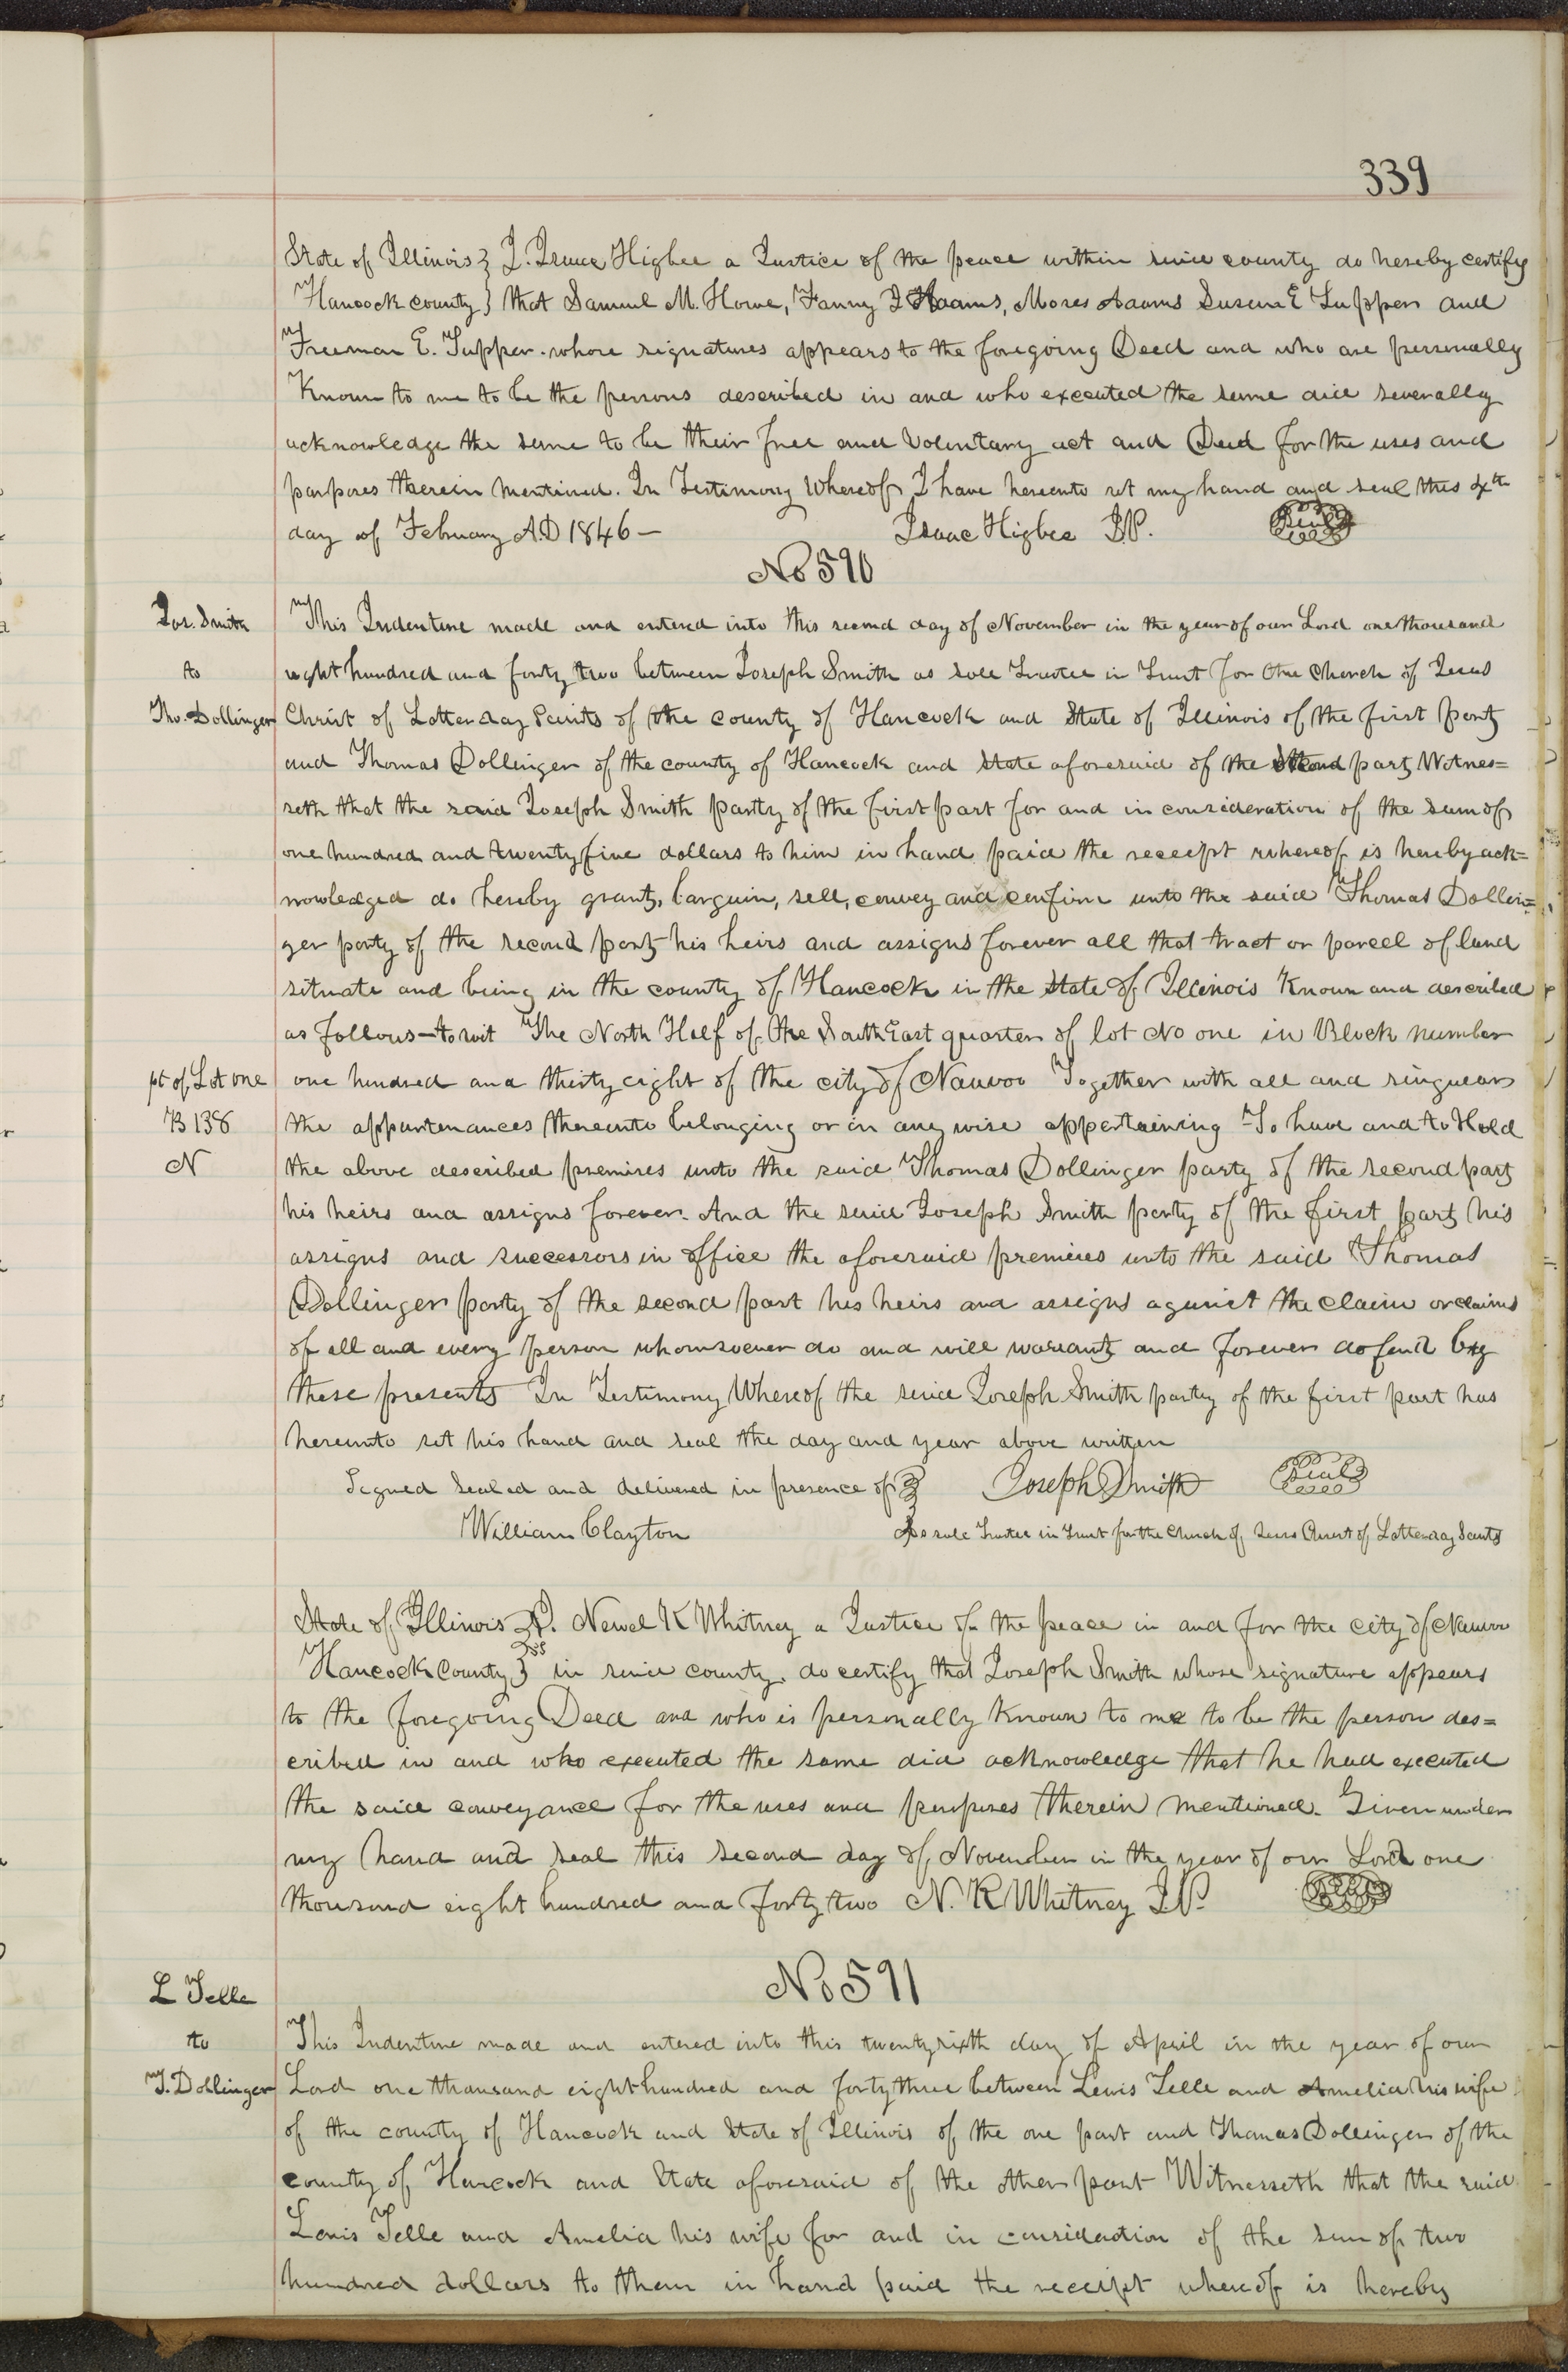 339
State of Illinois } I. Isaac Higbee a Justice of the peace within said county do hereby certify
Hancock county } that Samuel M. Howe, Fanny I Adams, Moses Adams Susan E Tupper and
Freeman E. Tupper. whose signatures appears to the foregoing Deed and who are personally
Known to me to be the persons described in and who executed the same did severally
acknowledge the same to be their free and voluntary act and Deed for the uses and
purposes therein mentioned. In Testimony Whereof I have hereunto set my hand and seal this 4th
day of February A.D 1846 — Isaac Higbee J.P. Seal
No 590
Jos. Smith
to
Tho. Dollinger
This Indenture made and entered into this second day of November in the year of our Lord one thousand
eight hundred and forty two between Joseph Smith as sole Trustee in Trust for the Church of Jesus
Christ of Latter day Saints of the county of Hancock and State of Illinois of the first part
and Thomas Dollinger of the county of Hancock and State aforesaid of the second part Witnes=
seth that the said Joseph Smith party of the first part for and in consideration of the sum of
one hundred and twenty five dollars to him in hand paid the receipt whereof is hereby ack=
nowledged do hereby grant, bargain, sell, convey and confirm unto the said Thomas Dollin=
ger party of the second part his heirs and assigns forever all that tract or parcel of land
situate and being in the county of Hancock in the State of Illinois Known and described
as follows—to wit The North Half of the South East quarter of lot No one in Block number
pt of Lot one
B 138
N
one hundred and thirty eight of the city of Nauvoo Together with all and singular
the appurtenances thereunto belonging or in any wise appertaining To have and to Hold
the above described premises unto the said Thomas Dollinger party of the second part
his heirs and assigns forever. And the said Joseph Smith party of the first part his
assigns and successors in office the aforesaid premises unto the said Thomas
Dollinger party of the second part his heirs and assigns against the claim or claims
of all and every person whomsoever do and will warrant and forever defend by
these presents In Testimony Whereof the said Joseph Smith party of the first part has
hereunto set his hand and seal the day and year above written
Signed Sealed and delivered in presence of } Joseph Smith Seal
William Clayton As sole Trustee in Trust for the Church of Jesus Christ of Latter day Saints
State of Illinois } I. Newel K Whitney a Justice of the peace in and for the city of Nauvoo
Hancock County } ss in said county. do certify that Joseph Smith whose signature appears
to the foregoing Deed and who is personally Known to me to be the person des=
cribed in and who executed the same did acknowledge that he had executed
the said conveyance for the uses and purposes therein mentioned. Given under
my hand and seal this second day of November in the year of our Lord one
thousand eight hundred and forty two N. K Whitney J.P. Seal
No 591
L Telle
to
T. Dollinger
This Indenture made and entered into this twenty sixth day of April in the year of our
Lord one thousand eight hundred and forty three between Lewis Telle and Amelia his wife
of the county of Hancock and State of Illinois of the one part and Thomas Dollinger of the
county of Hancock and State aforesaid of the other part Witnesseth that the said
Lewis Telle and Amelia his wife for and in considaction of the sum of two
hundred dollars to them in hand paid the receipt whereof is hereby